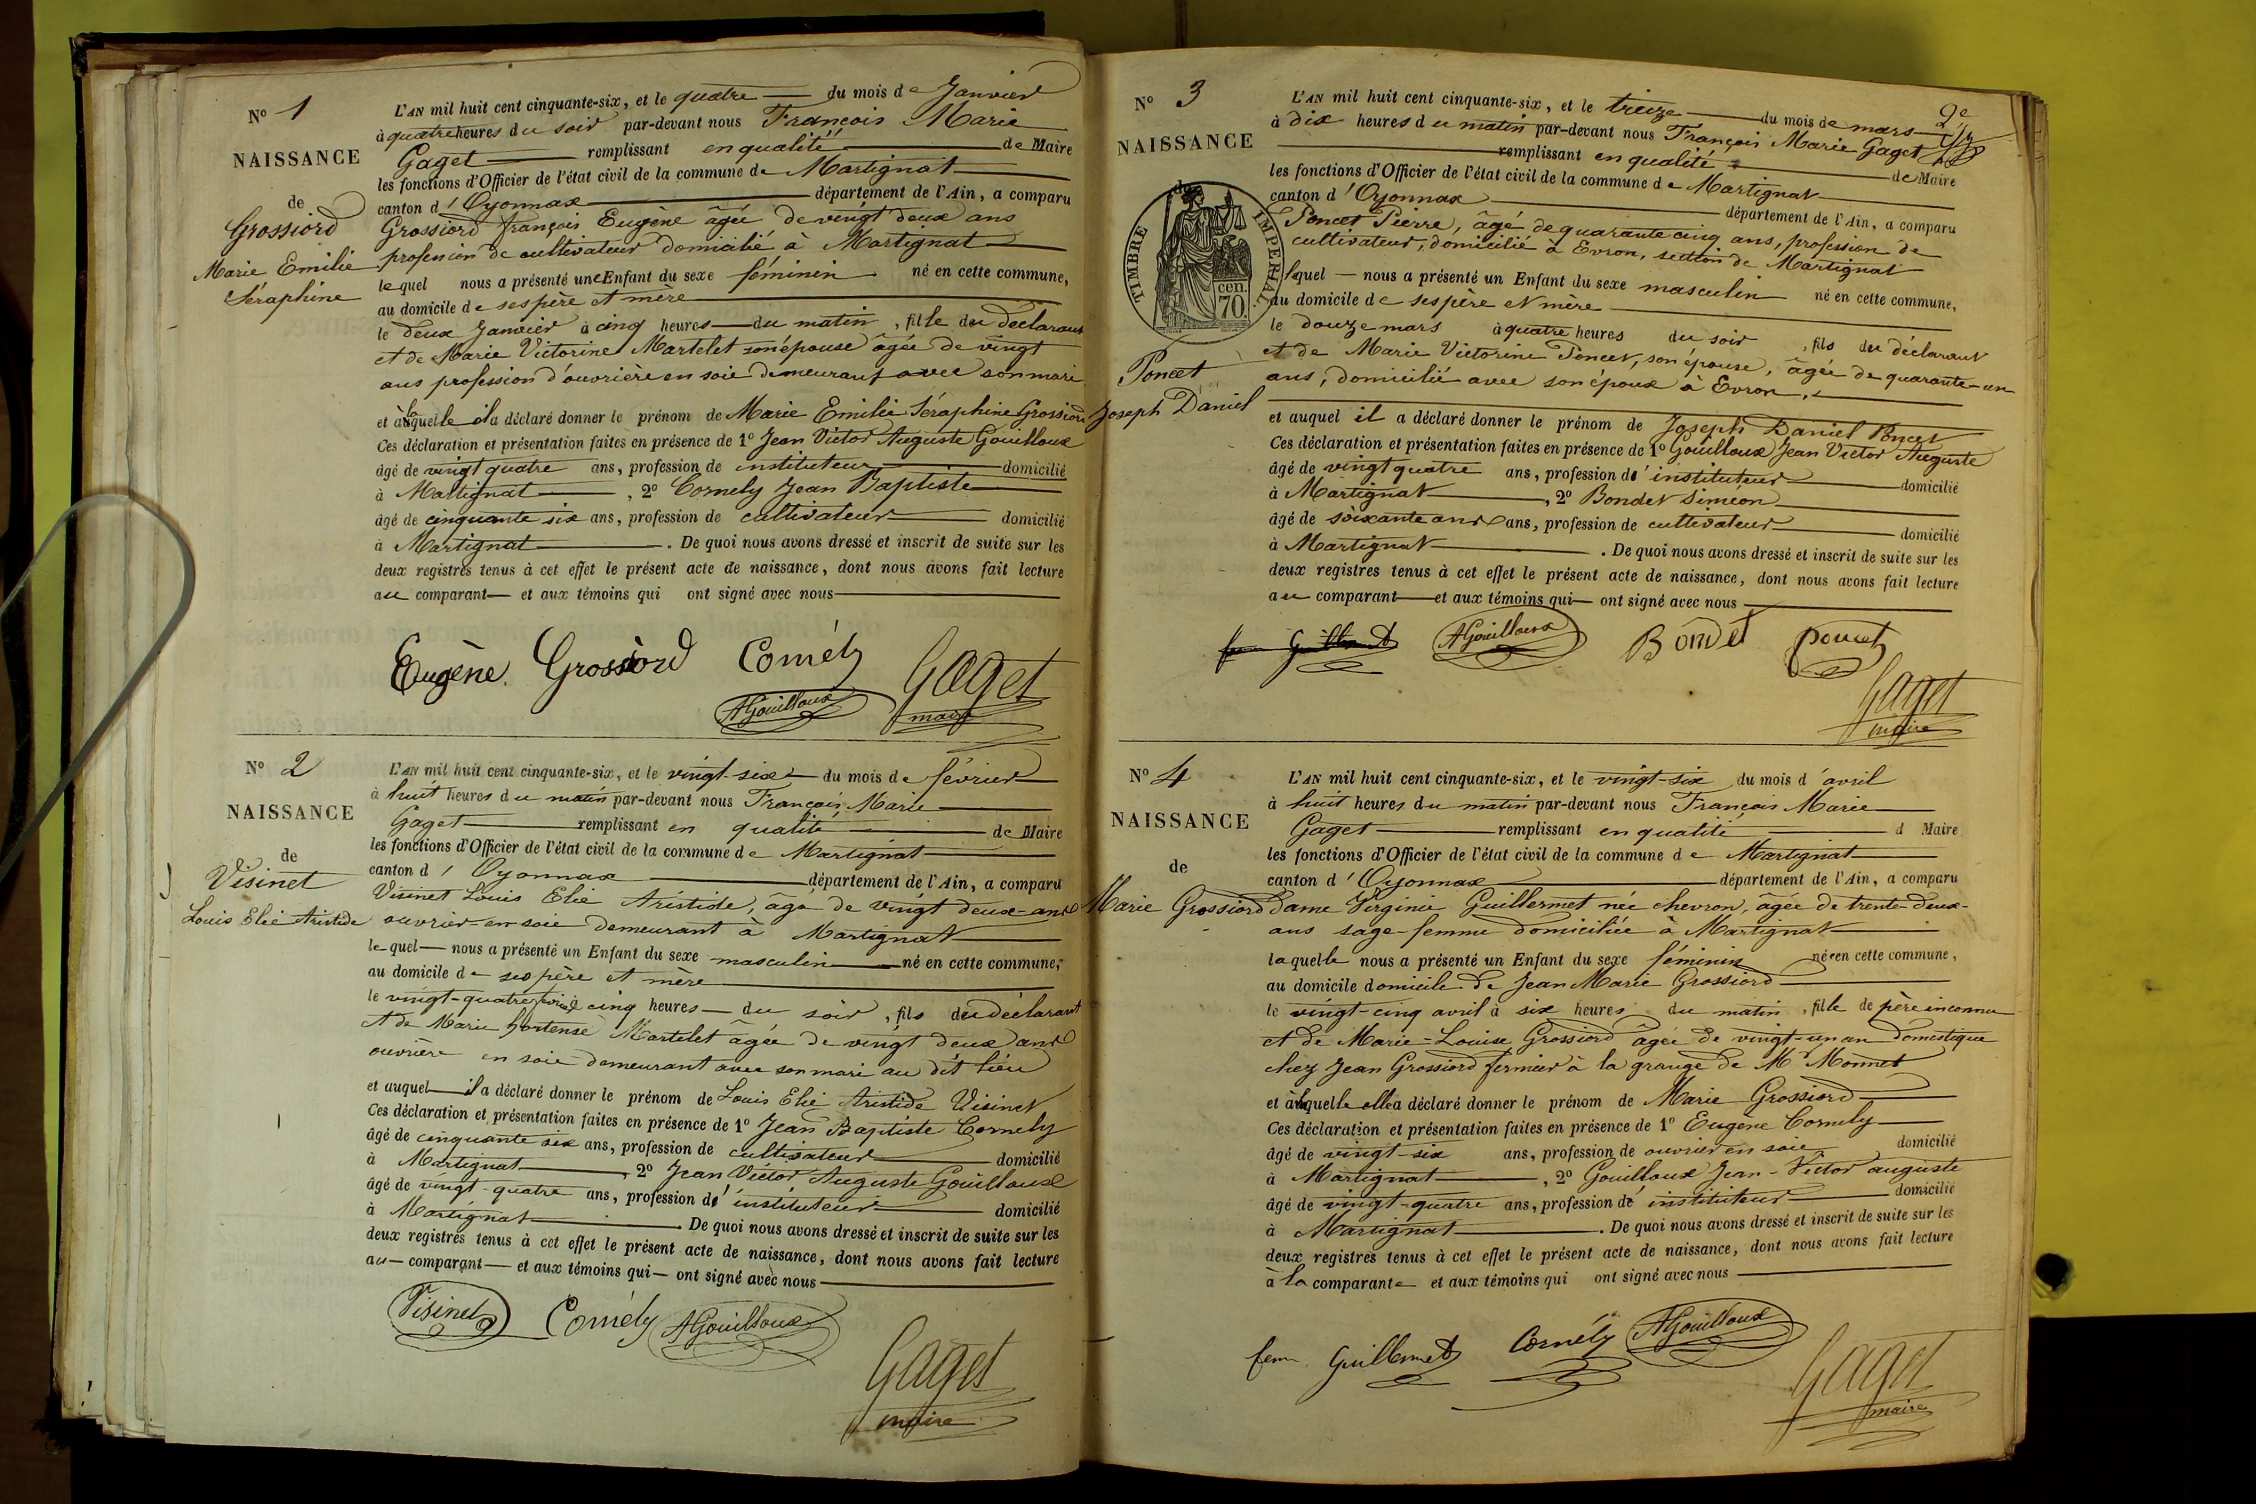 N° 1
NAISSANCE
de
Grossiord
Marie Emilie
Séraphine
L'AN mil huit cent cinquante-six, et le quatre du mois de Janvier
à quatre heures du soir par-devant nous François Marie
Gaget remplissant en qualité de Maire
les fonctions d'Officier de l'état civil de la commune de Martignat
canton d'Oyonnax département de l'Ain, a comparu
Grossiord françois Eugène âgée de vingt deux ans
profession de cultivateur domicilié à Martignat
lequel nous a présenté une Enfant du sexe féminin né en cette commune,
au domicile de ses père et mère
le deux Janvier à cinq heures du matin, fille du déclarant
et de Marie Victorine Martelet son épouse âgée de vingt
ans profession d'ouvrière en soie demeurant avec son mari
et à laquelle il a déclaré donner le prénom de Marie Emilie Séraphine Grossiord
Ces déclaration et présentation faites en présence de 1° Jean Victor Auguste Gouilloux
âgé de vingt quatre ans, profession de instituteur domicilié
à Martignat, 2° Cornely Jean Baptiste
âgé de cinquante six ans, profession de cultivateur domicilié
à Martignat. De quoi nous avons dressé et inscrit de suite sur les
deux registres tenus à cet effet le présent acte de naissance, dont nous avons fait lecture
au comparant et aux témoins qui ont signé avec nous
Eugène Grossiord Cornély Gaget
AGouilloux maire
N° 2
NAISSANCE
de
Visinet
Louis Elie Aristide
L'AN mil huit cent cinquante-six, et le vingt-six du mois de février
à huit heures du matin par-devant nous François Marie
Gaget remplissant en qualité de Maire
les fonctions d'Officier de l'état civil de la commune de Martignat
canton d'Oyonnax département de l'Ain, a comparu
Visinet Louis Elie Aristide, âgé de vingt deux ans
ouvrier en soie demeurant à Martignat
lequel nous a présenté un Enfant du sexe masculin né en cette commune,
au domicile de ses père et mère
le vingt-quatre février à cinq heures du soir, fils du déclarant
et de Marie hortense Martelet âgée de vingt deux ans
ouvrière en soie demeurant avec son mari au dit lieu
et auquel il a déclaré donner le prénom de Louis Elie Aristide Visinet
Ces déclaration et présentation faites en présence de 1° Jean Baptiste Cornely
âgé de cinquante six ans, profession de cultivateur domicilié
à Martignat, 2° Jean Victor Auguste Gouilloux
âgé de vingt-quatre ans, profession d'instituteur domicilié
à Martignat. De quoi nous avons dressé et inscrit de suite sur les
deux registres tenus à cet effet le présent acte de naissance, dont nous avons fait lecture
au comparant et aux témoins qui ont signé avec nous
Visinet Cornély AGouilloux
Gaget
maire
2e
N° 3
NAISSANCE
de
TIMBRE IMPERIAL
70 cen.
Poncet
Joseph Daniel
L'AN mil huit cent cinquante-six, et le treize du mois de mars
à dix heures du matin par-devant nous François Marie Gaget
remplissant en qualité de Maire
les fonctions d'Officier de l'état civil de la commune de Martignat
canton d'Oyonnax département de l'Ain, a comparu
Poncet Pierre, âgé de quarante cinq ans, profession de
cultivateur, domicilié à Evron, section de Martignat
lequel nous a présenté un Enfant du sexe masculin né en cette commune,
au domicile de ses père et mère
le douze mars à quatre heures du soir, fils du déclarant
et de Marie Victorine Poncet, son épouse, âgée de quarante-un
ans, domicilié avec son époux à Evron,
et auquel il a déclaré donner le prénom de Joseph Daniel Poncet
Ces déclaration et présentation faites en présence de 1° Gouilloux Jean Victor Auguste
âgé de vingt quatre ans, profession d'instituteur domicilié
à Martignat, 2° Bondet Siméon
âgé de soixante ans, profession de cultivateur domicilié
à Martignat. De quoi nous avons dressé et inscrit de suite sur les
deux registres tenus à cet effet le présent acte de naissance, dont nous avons fait lecture
au comparant et aux témoins qui ont signé avec nous
AGouilloux Bondet poncet
Gaget
maire
N° 4
NAISSANCE
de
Marie Grossiord
L'AN mil huit cent cinquante-six, et le vingt-six du mois d'avril
à huit heures du matin par-devant nous François Marie
Gaget remplissant en qualité d Maire
les fonctions d'Officier de l'état civil de la commune de Martignat
canton d'Oyonnax département de l'Ain, a comparu
Dame Virginie Guillermet née chevron, âgée de trente-deux-
ans sage-femme domiciliée à Martignat
laquelle nous a présenté un Enfant du sexe féminin née en cette commune,
au domicile domicile de Jean Marie Grossiord
le vingt-cinq avril à six heures du matin, fille de père inconnu
et de Marie-Louise Grossiord âgée de vingt-un an domestique
chez Jean Grossiord fermier à la grange de Mr Monnet
et à laquelle elle a déclaré donner le prénom de Marie Grossiord
Ces déclaration et présentation faites en présence de 1° Eugène Cornely
âgé de vingt-six ans, profession de ouvrier en soie domicilié
à Martignat, 2° Gouilloux Jean-Victor auguste
âgé de vingt-quatre ans, profession d'instituteur domicilié
à Martignat. De quoi nous avons dressé et inscrit de suite sur les
deux registres tenus à cet effet le présent acte de naissance, dont nous avons fait lecture
à la comparante et aux témoins qui ont signé avec nous
fem Guillermet Cornély AGouilloux
Gaget
maire